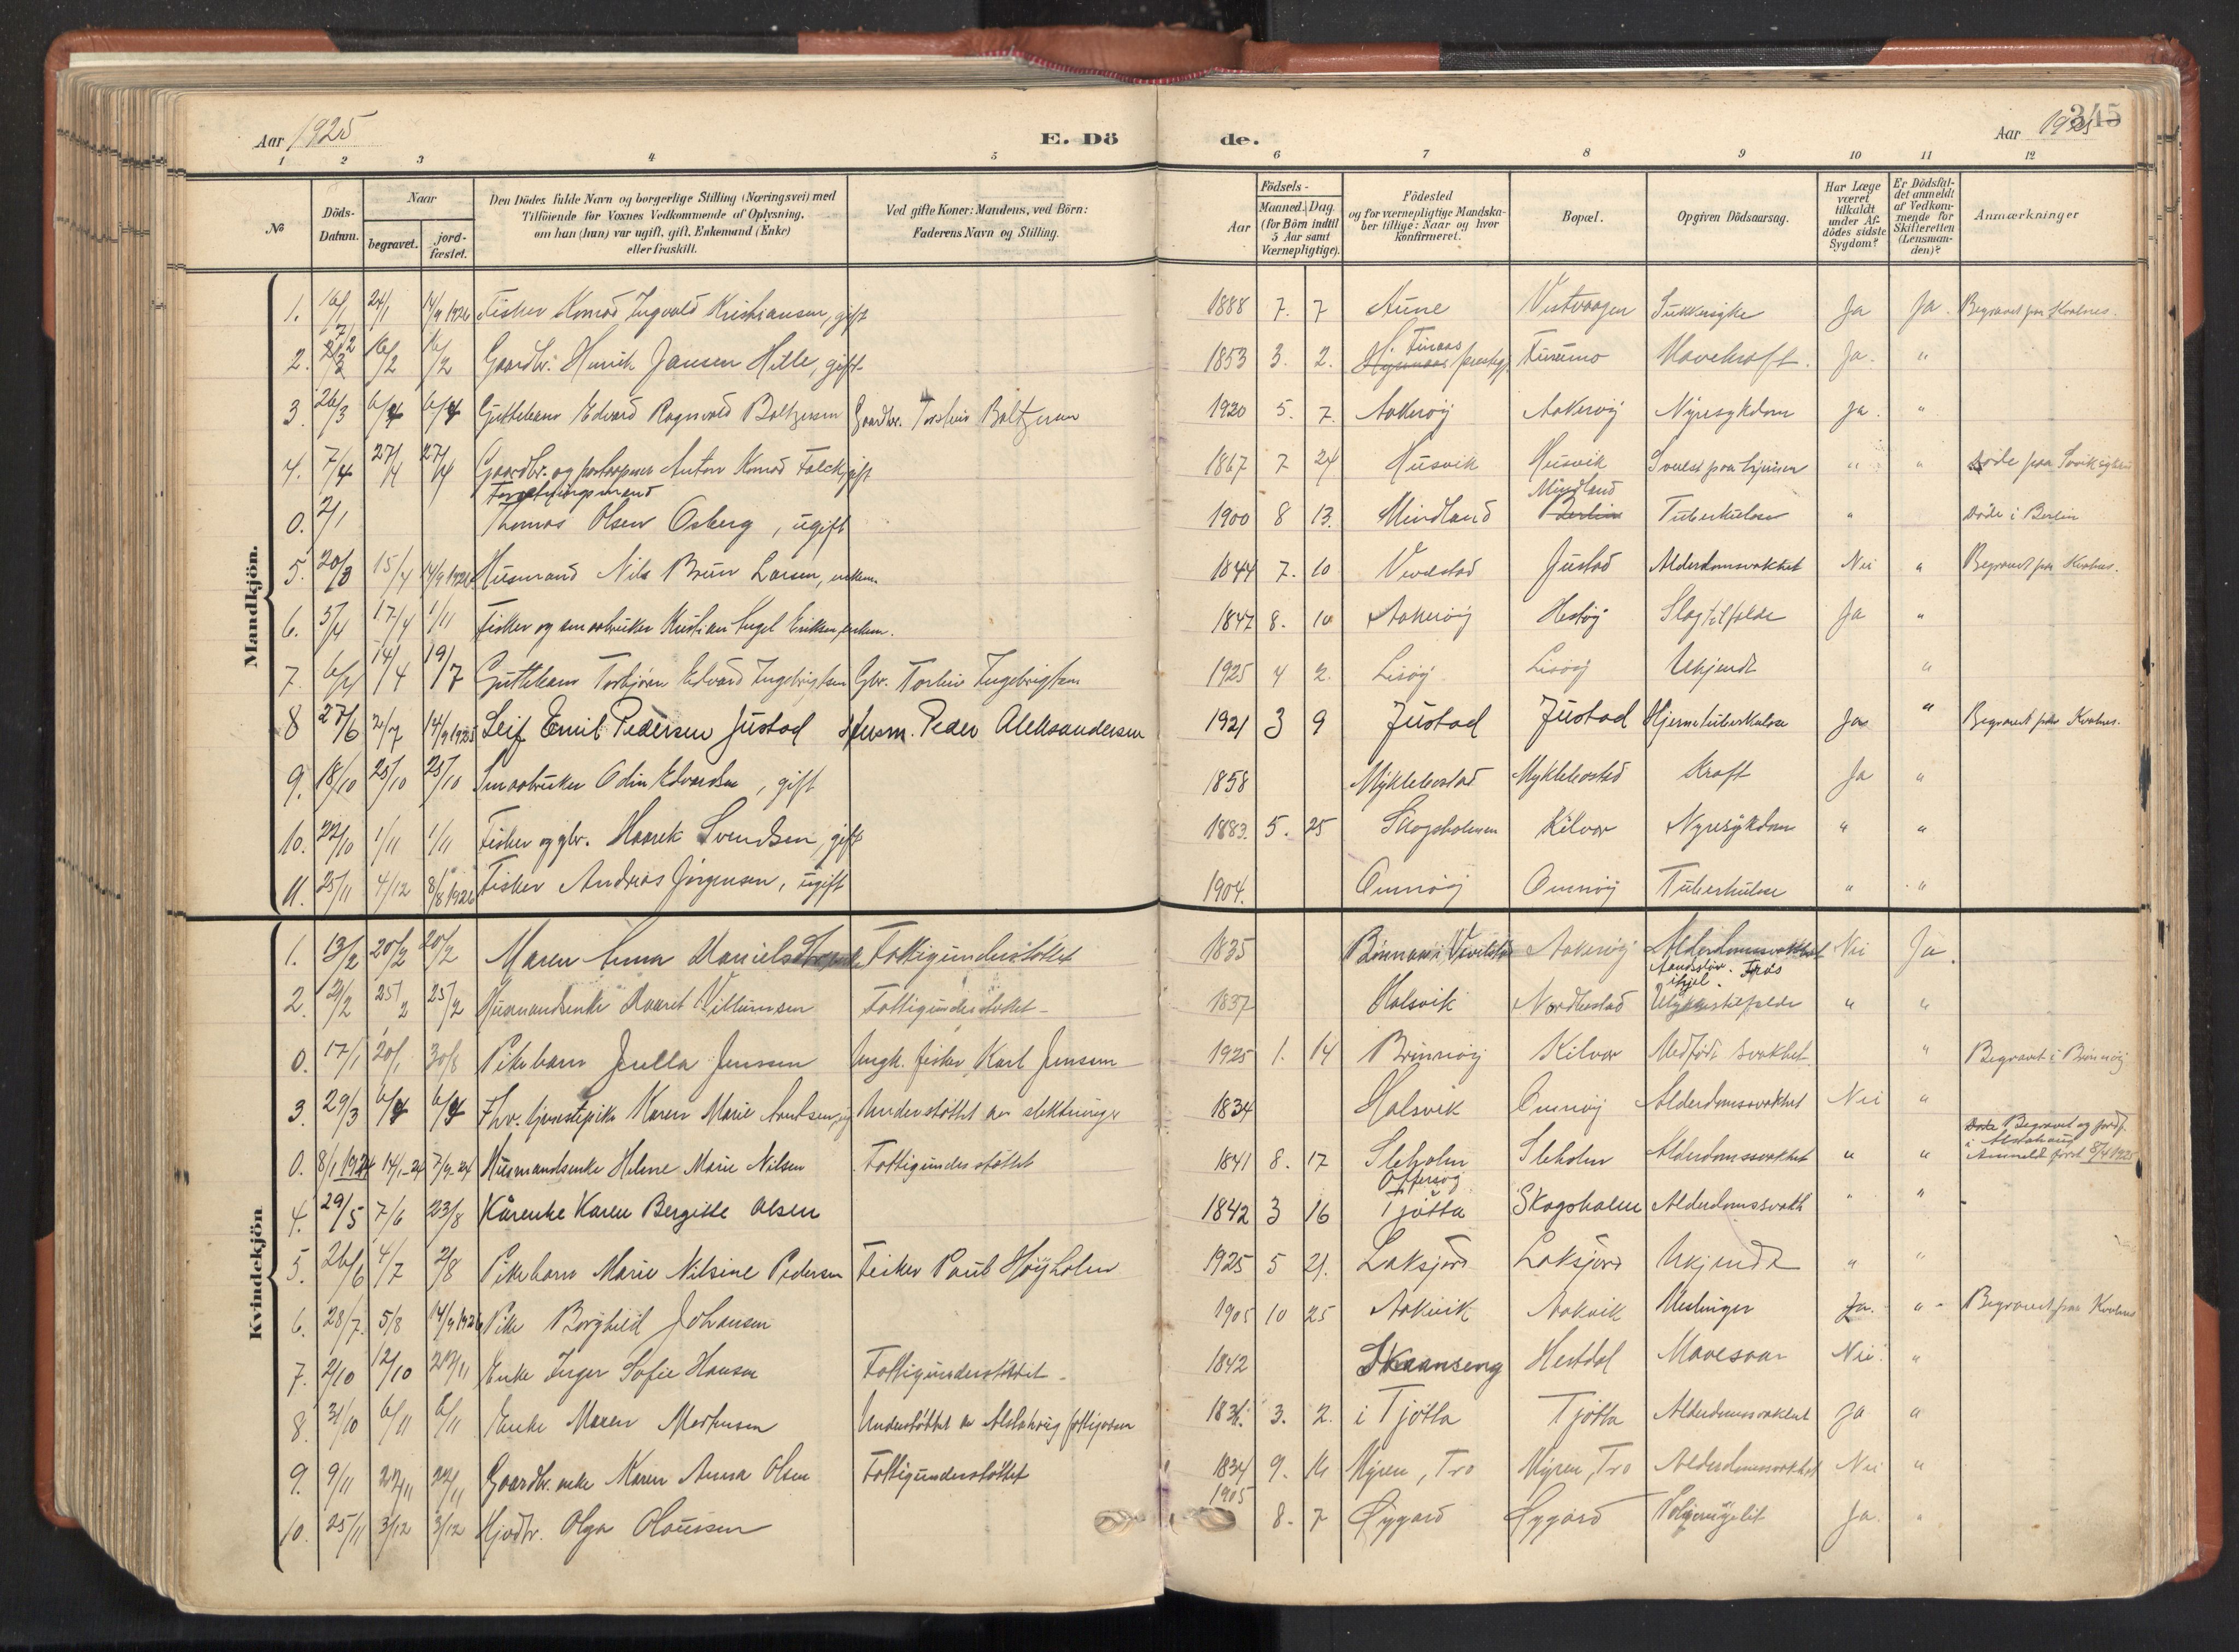 Aar 1925
E. Dö
de.
Aar 1925
345
1 2 3 4 5 6 7 8 9 10 11 12
№
Döds-
Datum.
Naar
begravet.
jord-
fæstet.
Den Dödes fulde Navn og borgerlige Stilling (Næringsvei) med
Tilföiende for Voxnes Vedkommende af Oplysning,
om han (hun) var ugift, gift, Enkemand (Enke)
eller fraskilt.
Ved gifte Koner: Mandens, ved Börn:
Faderens Navn og Stilling.
Födsels-
Aar
Maaned. Dag.
(for Börn indtil
5 Aar samt
Værnepligtige).
Födested
og for værnepligtige Mandska-
ber tillige: Naar og hvor
Konfirmeret.
Bopæl.
Opgiven Dödsaarsag.
Har Læge
været
tilkaldt
under Af-
dödes sidste
Sygdom?
Er Dödsfal-
det anmeldt
af Vedkom-
mende for
Skifteretten
(Lensman-
den)?
Anmærkninger
Mandkjön.
1. 16/1 24/1 14/9 1926 Fisker Konrad Ingvald Kristiansen, gift 1888 7. 7 Aune Vistvaagen Sukkersyke Ja Ja. Begravet paa Kvalnes.
2. 16/2 16/2 Gaardbr. Henrik Jansen Hille, gift 1853 3. 2. Finnes Furumo Mavekraft. Ja. "
3. 26/3 6/4 6/4 Guttebarn Edvard Ragnvald Baltzersen Gaardbr. Torstein Baltzersen 1920 5. 7. Aakerøy Aakerøy Nyresykdom Ja. "
4. 7/4 27/4 27/4 Gaardbr. og postaapner Anton Konrad Falch, gift 1867 7 24 Husvik Husvik Svulst paa hjernen " " Døde paa Sandnessjøen
Forretningsmand Mindland
0. 2/1 Thomas Olsen Osberg, ugift 1900 8 13. Mindland Berlin Tuberkulose " Døde i Berlin
5. 20/3 15/4 14/9 1926 Husmand Nils Brun Larsen, enkem. 1844 7. 10 Vevelstad Justad Alderdomssvakhet Nei " Begravet paa Kvalnes.
6. 5/4 17/4 1/11 Fisker og smaabruker Kristian Angel Eriksen, enkem. 1847 8. 10 Aakerøy Hestøy Slagtilfelde Ja "
7. 6/4 14/4 19/7 Guttebarn Torbjørn Edvard Ingebrigtsen Gbr. Torleiv Ingebrigtsen 1925 4 2. Lisøy Lisøy Ukjendt "
8 27/6 2/7 14/9 1925 Leif Emil Pedersen Justad Husm. Peder Aleksandersen 1921 3 9 Justad Justad Hjernetuberkulose Ja " Begravet paa Kvalnes.
9. 18/10 25/10 25/10 Smaabruker Odin Edvardsen, gift 1858 Myklebostad Myklebostad Kraft Ja "
10. 22/10 1/11 1/11 Fisker og gbr. Haarek Svendsen, gift 1883. 5. 25 Skogsholmen Kilvær Nyresykdom " "
11. 25/11 4/12 8/8 1926 Fisker Andreas Jørgensen, ugift 1904. Omnøy Omnøy Tuberkulose " "
Kvindekjön
1. 13/2 20/2 20/2 Maren Anna Danielsdtr Fattigunderstøttet 1835 Brønnes i Vevelstad Aakerøy Alderdomssvakhet Nei Ja.
Aandssløv. Frøs
ihjel.
2. 2/2 25/2 25/2 Husmandsenke Maaret Villumsen Fattigunderstøttet 1837 Halsvik Nordbostad Ulykkestilfelde " "
0. 17/1 20/1 30/8 Pikebarn Julla Jensen Ungk. fisker Karl Jensen 1925 1. 14 Brønnøy Kilvær Medfødt svakhet " Begravet i Brønnøy
3. 29/3 6/4 6/4 Fhv. tjenestepike Karen Marie Arntsen, ug. Understøttet av slektninger 1834 Halsvik Omnøy Alderdomssvakhet Nei "
0. 8/1 1924 14/1-24 7/9-24 Husmandsenke Helene Marie Nilsen Fattigunderstøttet 1841 8. 17 Sleholm Sleholm Alderdomssvakhet " " Begravet og jordf.
i Alstahaug
Anmeldt først 8/4 1925
Offersøy
4. 29/5 7/6 23/8 Kårenke Karen Bergitte Olsen 1842 3 16 Tjøtta Skogsholm Alderdomssvakh " "
5. 26/6 4/7 2/8 Pikebarn Marie Nilsine Pedersen Fisker Paul Høyholm 1925 5 21. Laksfors Laksfors Ukjendt " "
6. 28/7. 5/8 14/9 1926 Pike Borghild Johansen 1905 10 25 Aakvik Aakvik Meslinger Ja. " Begravet paa Kvalnes
7. 2/10 12/10 22/11 Enke Inger Sofie Hansen Fattigunderstøttet 1842 Skaanseng Hestdal Mavesaar Nei. "
8. 31/10 6/11 6/11 Enke Maren Mortensen Understøttet av Alstahaug fattigvæsen 1831. 3. 2. i Tjøtta Tjøtta Alderdomssvakhet Ja "
9. 9/11 22/11 22/11 Gaardbr. enke Karen Anna Olsen Fattigunderstøttet 1834 9. 16 Myren, Tro Myren, Tro Alderdomssvakhet Nei "
10. 25/11 3/12 3/12 Olga Olaussen 1905 8. 7 Øygard Øygard Ja. "